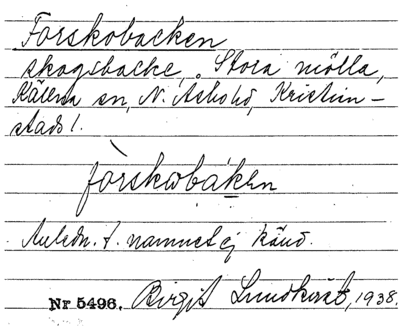 Forskobacken
skogsbacke, Stora mölla,
Källna sn, N. Åsbo hd, Kristian-
stads l.
fòrskωbákεn
Anledn. t. namnet ej känd.
Nr 5496. Birgit Lundkvist, 1938.